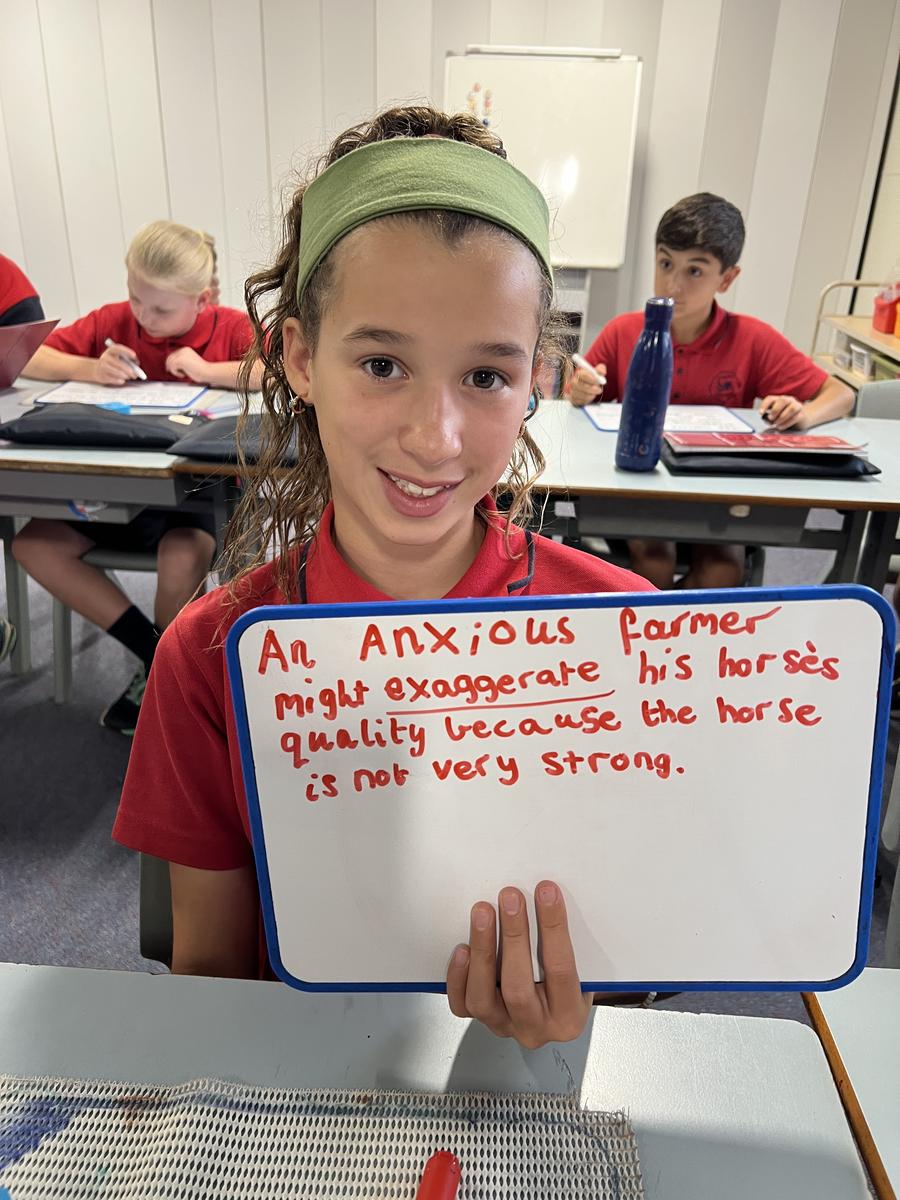 An Anxious farmer
might exaggerate his horsès
quality because the horse
is not very strong.